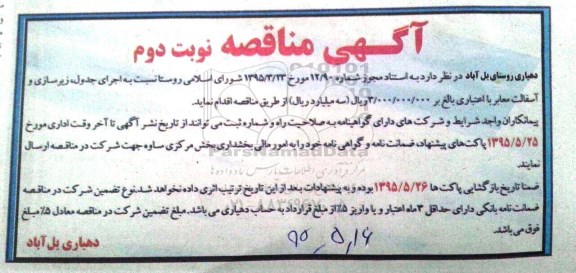 آگهی مناقصه نوبت دوم
دهیاری روستای یل آباد در نظر دارد به استناد مجوز شماره ۱۲/۹۰ مورخ ۱۳۹۵/۳/۲۳ شورای اسلامی روستا نسبت به اجرای جدول، زیرسازی و
آسفالت معابر با اعتباری بالغ بر ۳/۰۰۰/۰۰۰/۰۰۰ریال (سه میلیارد ریال) از طریق مناقصه اقدام نماید.
پیمانکاران واجد شرایط و شرکت های دارای گواهینامه به صلاحیت راه و شماره ثبت می توانند از تاریخ نشر آگهی تا آخر وقت اداری مورخ
۱۳۹۵/۵/۲۵ پاکت‌های پیشنهاد، ضمانت نامه و گواهی نامه خود را به امور مالی بخشداری بخش مرکزی ساوه جهت شرکت در مناقصه ارسال
نمایند.
ضمنا تاریخ بازگشایی پاکت ها ۱۳۹۵/۵/۲۶ بوده و به پیشنهادات بعد از این تاریخ ترتیب اثری داده نخواهد شد.نوع تضمین شرکت در مناقصه
ضمانت نامه بانکی دارای حداقل ۳ماه اعتبار و یا واریز ۵٪از مبلغ قرارداد به حساب دهیاری می باشد. مبلغ تضمین شرکت در مناقصه معادل ۵٪مبلغ
فوق می باشد.
دهیاری یل آباد
۹۵_۵_۱۶
ParsNamadData